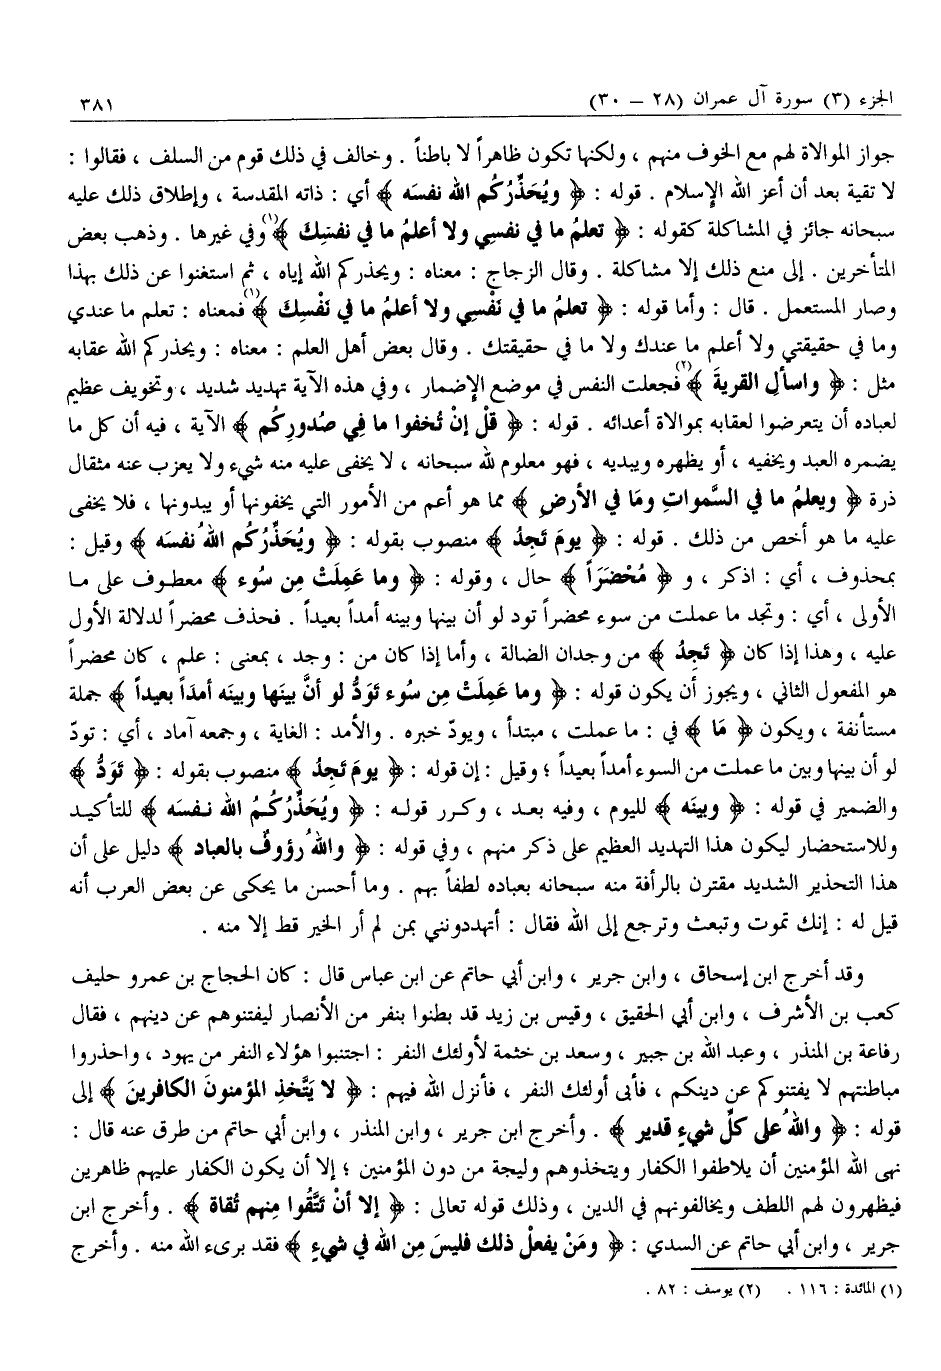 الجزء (٣) سورة آل عمران (٢٨ – ٣٠) ٣٨١
جواز الموالاة لهم مع الخوف منهم ، ولكنها تكون ظاهراً لا باطناً . وخالف في ذلك قوم من السلف ، فقالوا :
لا تقية بعد أن أعز الله الإسلام . قوله : ﴿ ويُحَذِّرُكُم الله نفسَه ﴾ أي : ذاته المقدسة ، وإطلاق ذلك عليه
سبحانه جائز في المشاكلة كقوله : ﴿ تعلمُ ما في نفسِي ولا أعلمُ ما في نفسِكَ ﴾(١) وفي غيرها . وذهب بعض
المتأخرين . إلى منع ذلك إلا مشاكلة . وقال الزجاج : معناه : ويحذركم الله إياه ، ثم استغنوا عن ذلك بهذا
وصار المستعمل . قال : وأما قوله : ﴿ تعلمُ ما في نَفْسِي ولا أعلمُ ما في نَفْسِكَ ﴾(١) فمعناه : تعلم ما عندي
وما في حقيقتي ولا أعلم ما عندك ولا ما في حقيقتك . وقال بعض أهل العلم : معناه : ويحذركم الله عقابه
مثل : ﴿ واسألِ القريةَ ﴾(٢) فجعلت النفس في موضع الإضمار ، وفي هذه الآية تهديد شديد ، وتخويف عظيم
لعباده أن يتعرضوا لعقابه بموالاة أعدائه . قوله : ﴿ قلْ إنْ تُخفوا ما فِي صُدورِكُم ﴾ الآية ، فيه أن كل ما
يضمره العبد ويخفيه ، أو يظهره ويبديه ، فهو معلوم لله سبحانه ، لا يخفى عليه منه شيء ولا يعزب عنه مثقال
ذرة ﴿ ويعلمُ ما في السَّمواتِ ومَا في الأرضِ ﴾ مما هو أعم من الأمور التي يخفونها أو يبدونها ، فلا يخفى
عليه ما هو أخص من ذلك . قوله : ﴿ يومَ تَجِدُ ﴾ منصوب بقوله : ﴿ ويُحَذِّرُكُم اللهُ نفسَه ﴾ وقيل :
بمحذوف ، أي : اذكر ، و ﴿ مُحْضَرَاً ﴾ حال ، وقوله : ﴿ وما عَمِلَتْ مِن سُوء ﴾ معطوف على ما
الأولى ، أي : وتجد ما عملت من سوء محضراً تود لو أن بينها وبينه أمداً بعيداً . فحذف محضراً لدلالة الأول
عليه ، وهذا إذا كان ﴿ تَجِدُ ﴾ من وجدان الضالة ، وأما إذا كان من : وجد ، بمعنى : علم ، كان محضراً
هو المفعول الثاني ، ويجوز أن يكون قوله : ﴿ وما عَمِلَتْ مِن سُوء تَوَدُّ لو أنَّ بينَها وبينَه أمدَاً بعيداً ﴾ جملة
مستأنفة ، ويكون ﴿ مَا ﴾ في : ما عملت ، مبتدأ ، ويودّ خبره . والأمد : الغاية ، وجمعه آماد ، أي : تودّ
لو أن بينها وبين ما عملت من السوء أمداً بعيداً ؛ وقيل : إن قوله : ﴿ يومَ تَجِدُ ﴾ منصوب بقوله : ﴿ تَوَدُّ ﴾
والضمير في قوله : ﴿ وبينَه ﴾ لليوم ، وفيه بعد ، وكرر قوله : ﴿ ويُحَذِّرُكُمُ الله نفسَه ﴾ للتأكيد
وللاستحضار ليكون هذا التهديد العظيم على ذكر منهم ، وفي قوله : ﴿ واللهُ رؤوفٌ بالعباد ﴾ دليل على أن
هذا التحذير الشديد مقترن بالرأفة منه سبحانه بعباده لطفاً بهم . وما أحسن ما يحكى عن بعض العرب أنه
قيل له : إنك تموت وتبعث وترجع إلى الله فقال : أتهددونني بمن لم أر الخير قط إلا منه .
وقد أخرج ابن إسحاق ، وابن جرير ، وابن أبي حاتم عن ابن عباس قال : كان الحجاج بن عمرو حليف
كعب بن الأشرف ، وابن أبي الحقيق ، وقيس بن زيد قد بطنوا بنفر من الأنصار ليفتنوهم عن دينهم ، فقال
رفاعة بن المنذر ، وعبد الله بن جبير ، وسعد بن خثمة لأولئك النفر : اجتنبوا هؤلاء النفر من يهود ، واحذروا
مباطنتهم لا يفتنوكم عن دينكم ، فأبى أولئك النفر ، فأنزل الله فيهم : ﴿ لا يَتَّخذِ المؤمنونَ الكافرينَ ﴾ إلى
قوله : ﴿ واللهُ على كلِّ شيءٍ قدير ﴾ . وأخرج ابن جرير ، وابن المنذر ، وابن أبي حاتم من طرق عنه قال :
نهى الله المؤمنين أن يلاطفوا الكفار ويتخذوهم وليجة من دون المؤمنين ؛ إلا أن يكون الكفار عليهم ظاهرين
فيظهرون لهم اللطف ويخالفونهم في الدين ، وذلك قوله تعالى : ﴿ إلا أنْ تَتَّقُوا مِنهم تُقاة ﴾ . وأخرج ابن
جرير ، وابن أبي حاتم عن السدي : ﴿ ومَنْ يفعلْ ذلك فليسَ مِن الله في شيءٍ ﴾ فقد برىء الله منه . وأخرج
(١) المائدة : ١١٦ . (٢) يوسف : ٨٢ .